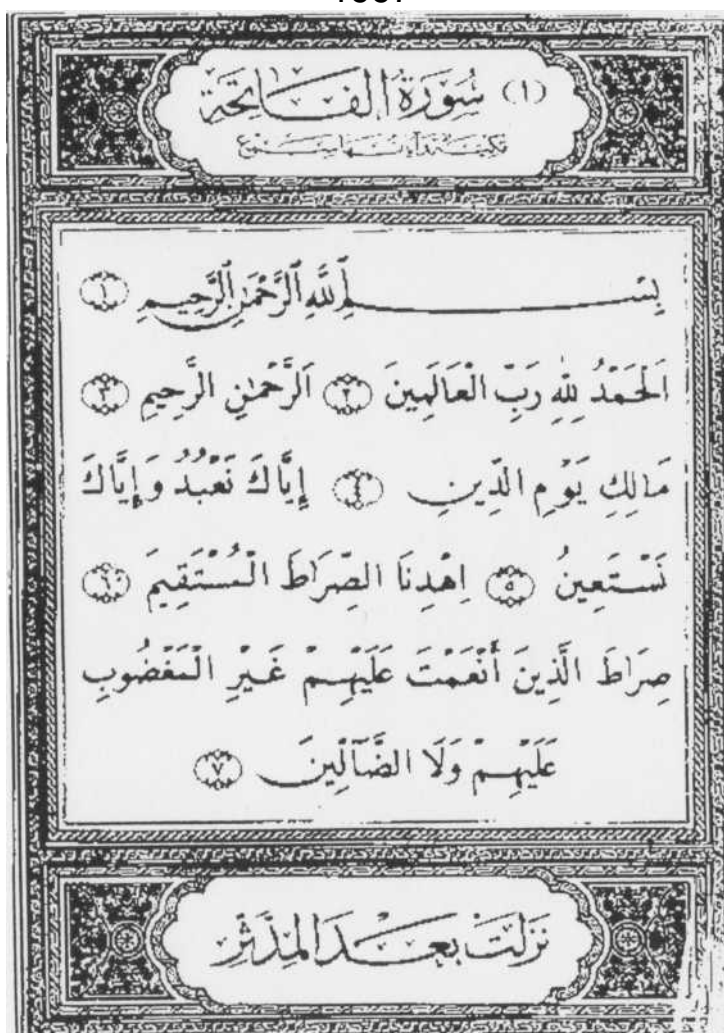 (١) سُورَةُ الفَاتِحَة
مَكِيَّة وَآيَاتُهَا سَبْع
بِسْمِ ٱللَّهِ ٱلرَّحْمَٰنِ ٱلرَّحِيمِ ١
اَلْحَمْدُ لِلَّهِ رَبِّ الْعَالَمِينَ ٢ اَلرَّحْمٰنِ الرَّحِيمِ ٣
مَالِكِ يَوْمِ الدِّينِ ٤ إِيَّاكَ نَعْبُدُ وَإِيَّاكَ
نَسْتَعِينُ ٥ اِهْدِنَا الصِّرَاطَ الْمُسْتَقِيمَ ٦
صِرَاطَ الَّذِينَ أَنْعَمْتَ عَلَيْهِمْ غَيْرِ الْمَغْضُوبِ
عَلَيْهِمْ وَلَا الضَّآلِّينَ ٧
نَزَلَتْ بَعْدَ المدَّثِّر